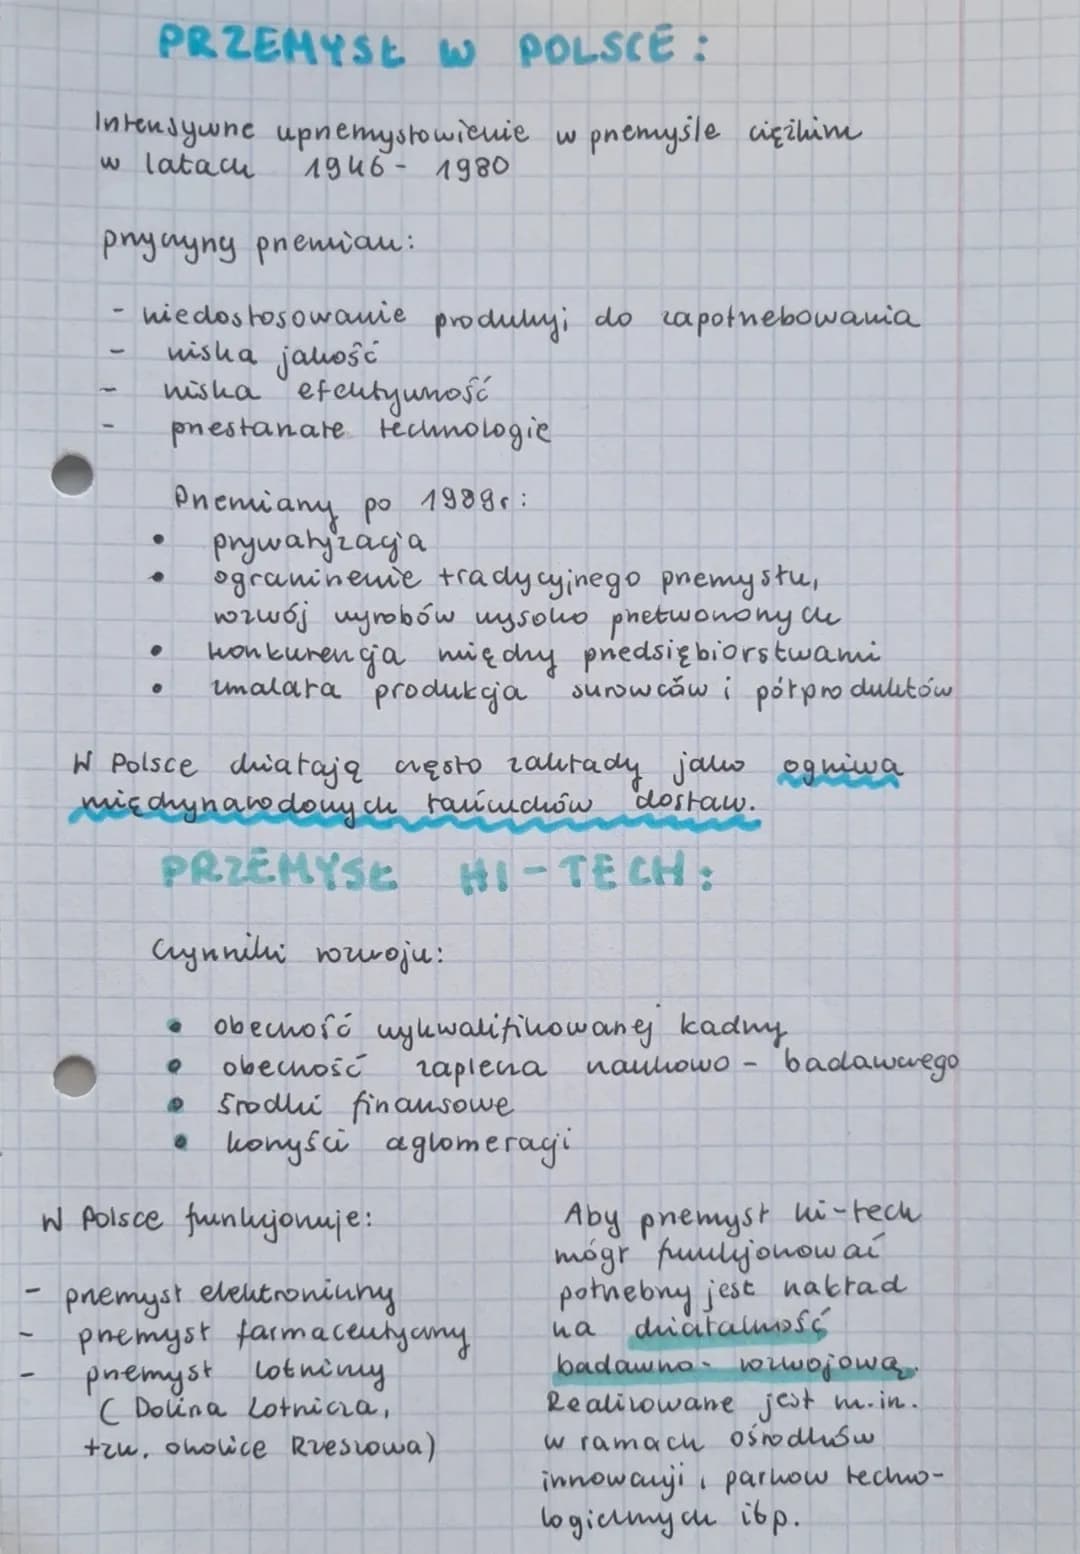 PRZEMYSŁ W POLSCE:
Intensywne uprzemysłowienie w przemyśle ciężkim
w latach 1946 - 1980
przyczyny przemian:
- niedostosowanie produkcji do zapotrzebowania
- niska jakość
- niska efektywność
- przestarzałe technologie
Przemiany po 1989r:
• prywatyzacja
• ograniczenie tradycyjnego przemysłu,
rozwój wyrobów wysoko przetworzonych
• konkurencja między przedsiębiorstwami
• zmalała produkcja surowców i półproduktów
W Polsce działają często zakłady jako ogniwa
międzynarodowych łańcuchów dostaw.
PRZEMYSŁ HI-TECH:
Czynniki rozwoju:
• obecność wykwalifikowanej kadry
• obecność zaplecza naukowo - badawczego
• środki finansowe
• korzyści aglomeracji
W Polsce funkcjonuje:
- przemysł elektroniczny
- przemysł farmaceutyczny
- przemysł lotniczy
( Dolina Lotnicza,
tzw. okolice Rzeszowa)
Aby przemysł hi-tech
mógł funkcjonować
potrzebny jest nakład
na działalność
badawczo - rozwojową.
Realizowane jest m.in.
w ramach ośrodków
innowacji, parków techno-
logicznych itp.